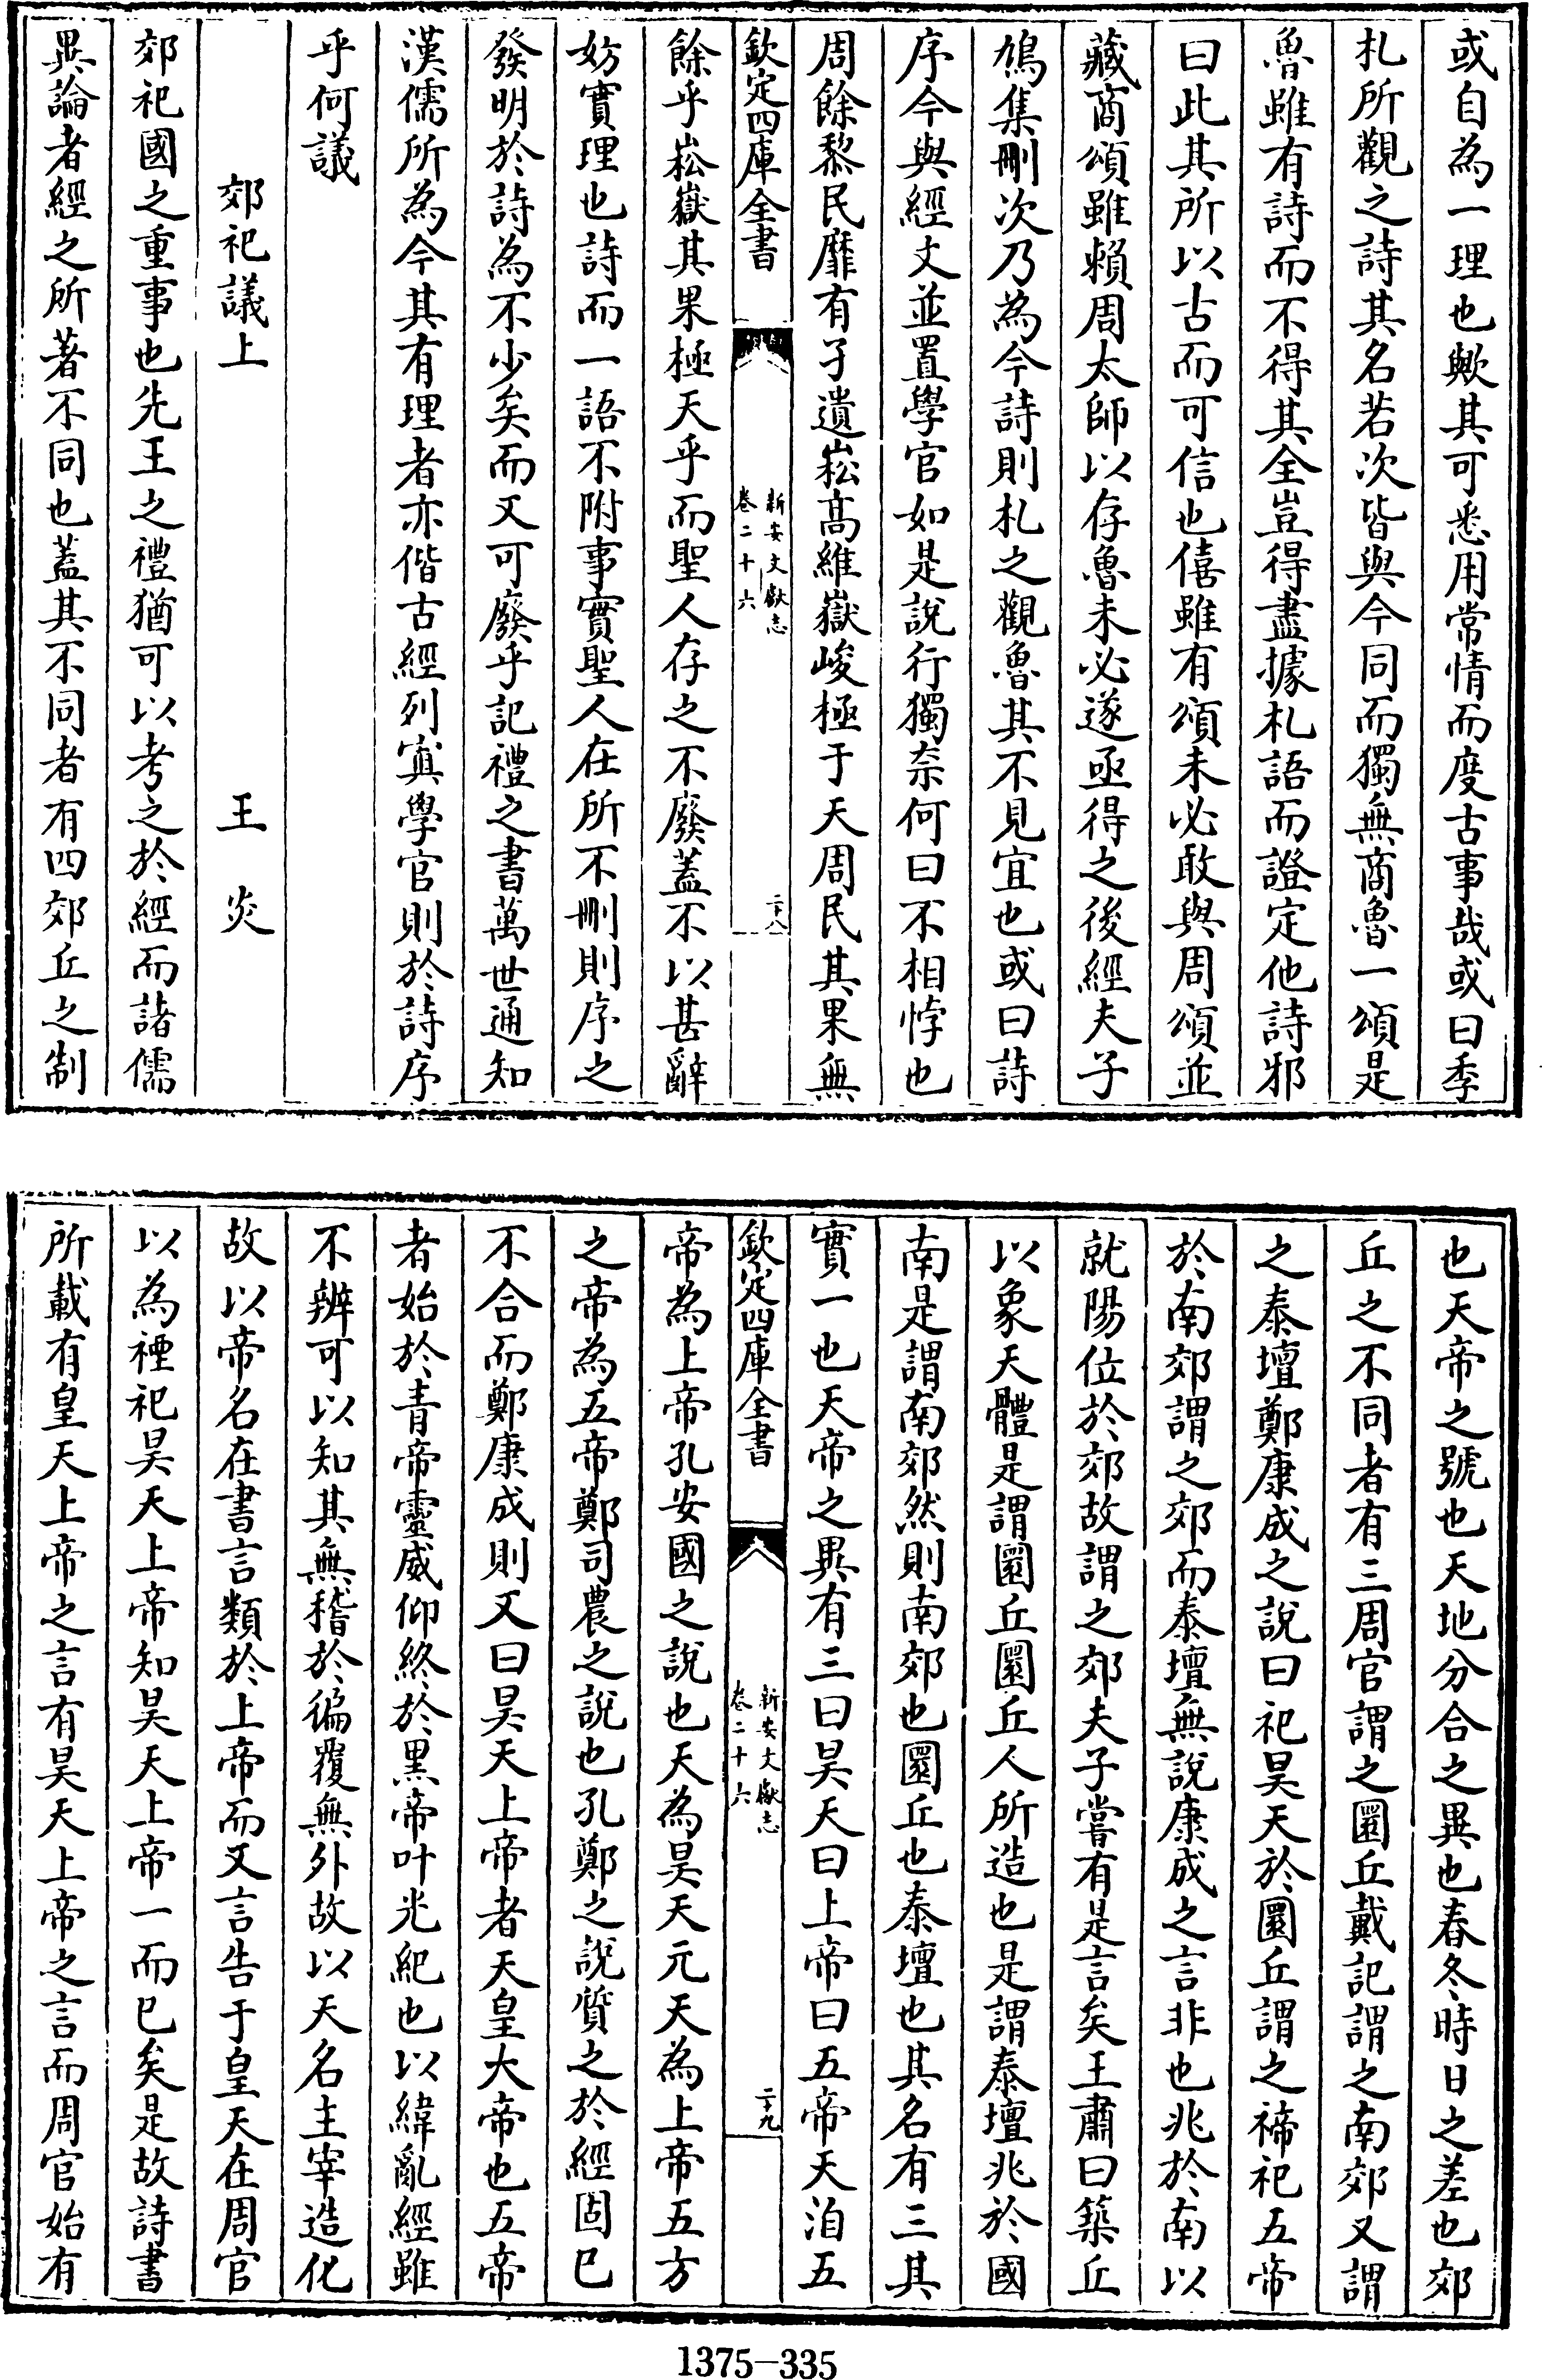 或自為一理也歟其可悉用常情而度古事哉或曰季
札所觀之詩其名若次皆與今同而獨無商魯一頌是
魯雖有詩而不得其全豈得盡據札語而證定他詩邪
曰此其所以古而可信也僖雖有頌未必敢與周頌並
藏商頌雖賴周太師以存魯未必遂亟得之後經夫子
鳩集刪次乃為今詩則札之觀魯其不見宜也或曰詩
序今與經文並置學官如是說行獨奈何曰不相悖也
周餘黎民靡有孑遺崧高維嶽峻極于天周民其果無
欽定四庫全書
新安文獻志
卷二十六
二十八
餘乎崧嶽其果極天乎而聖人存之不廢蓋不以甚辭
妨實理也詩而一語不附事實聖人在所不刪則序之
發明於詩為不少矣而又可廢乎記禮之書萬世通知
漢儒所為今其有理者亦偕古經列寘學官則於詩序
乎何議
郊祀議上 王炎
郊祀國之重事也先王之禮猶可以考之於經而諸儒
異論者經之所著不同也蓋其不同者有四郊丘之制
也天帝之號也天地分合之異也春冬時日之差也郊
丘之不同者有三周官謂之圜丘戴記謂之南郊又謂
之泰壇鄭康成之說曰祀昊天於圜丘謂之禘祀五帝
於南郊謂之郊而泰壇無說康成之言非也兆於南以
就陽位於郊故謂之郊夫子嘗有是言矣王肅曰築丘
以象天體是謂圜丘圜丘人所造也是謂泰壇兆於國
南是謂南郊然則南郊也圜丘也泰壇也其名有三其
實一也天帝之異有三曰昊天曰上帝曰五帝天洎五
欽定四庫全書
新安文獻志
卷二十六
二十九
帝為上帝孔安國之說也天為昊天元天為上帝五方
之帝為五帝鄭司農之說也孔鄭之說質之於經固已
不合而鄭康成則又曰昊天上帝者天皇大帝也五帝
者始於青帝靈威仰終於黑帝叶光紀也以緯亂經雖
不辨可以知其無稽於徧覆無外故以天名主宰造化
故以帝名在書言類於上帝而又言告于皇天在周官
以為禋祀昊天上帝知昊天上帝一而已矣是故詩書
所載有皇天上帝之言有昊天上帝之言而周官始有
1375-335